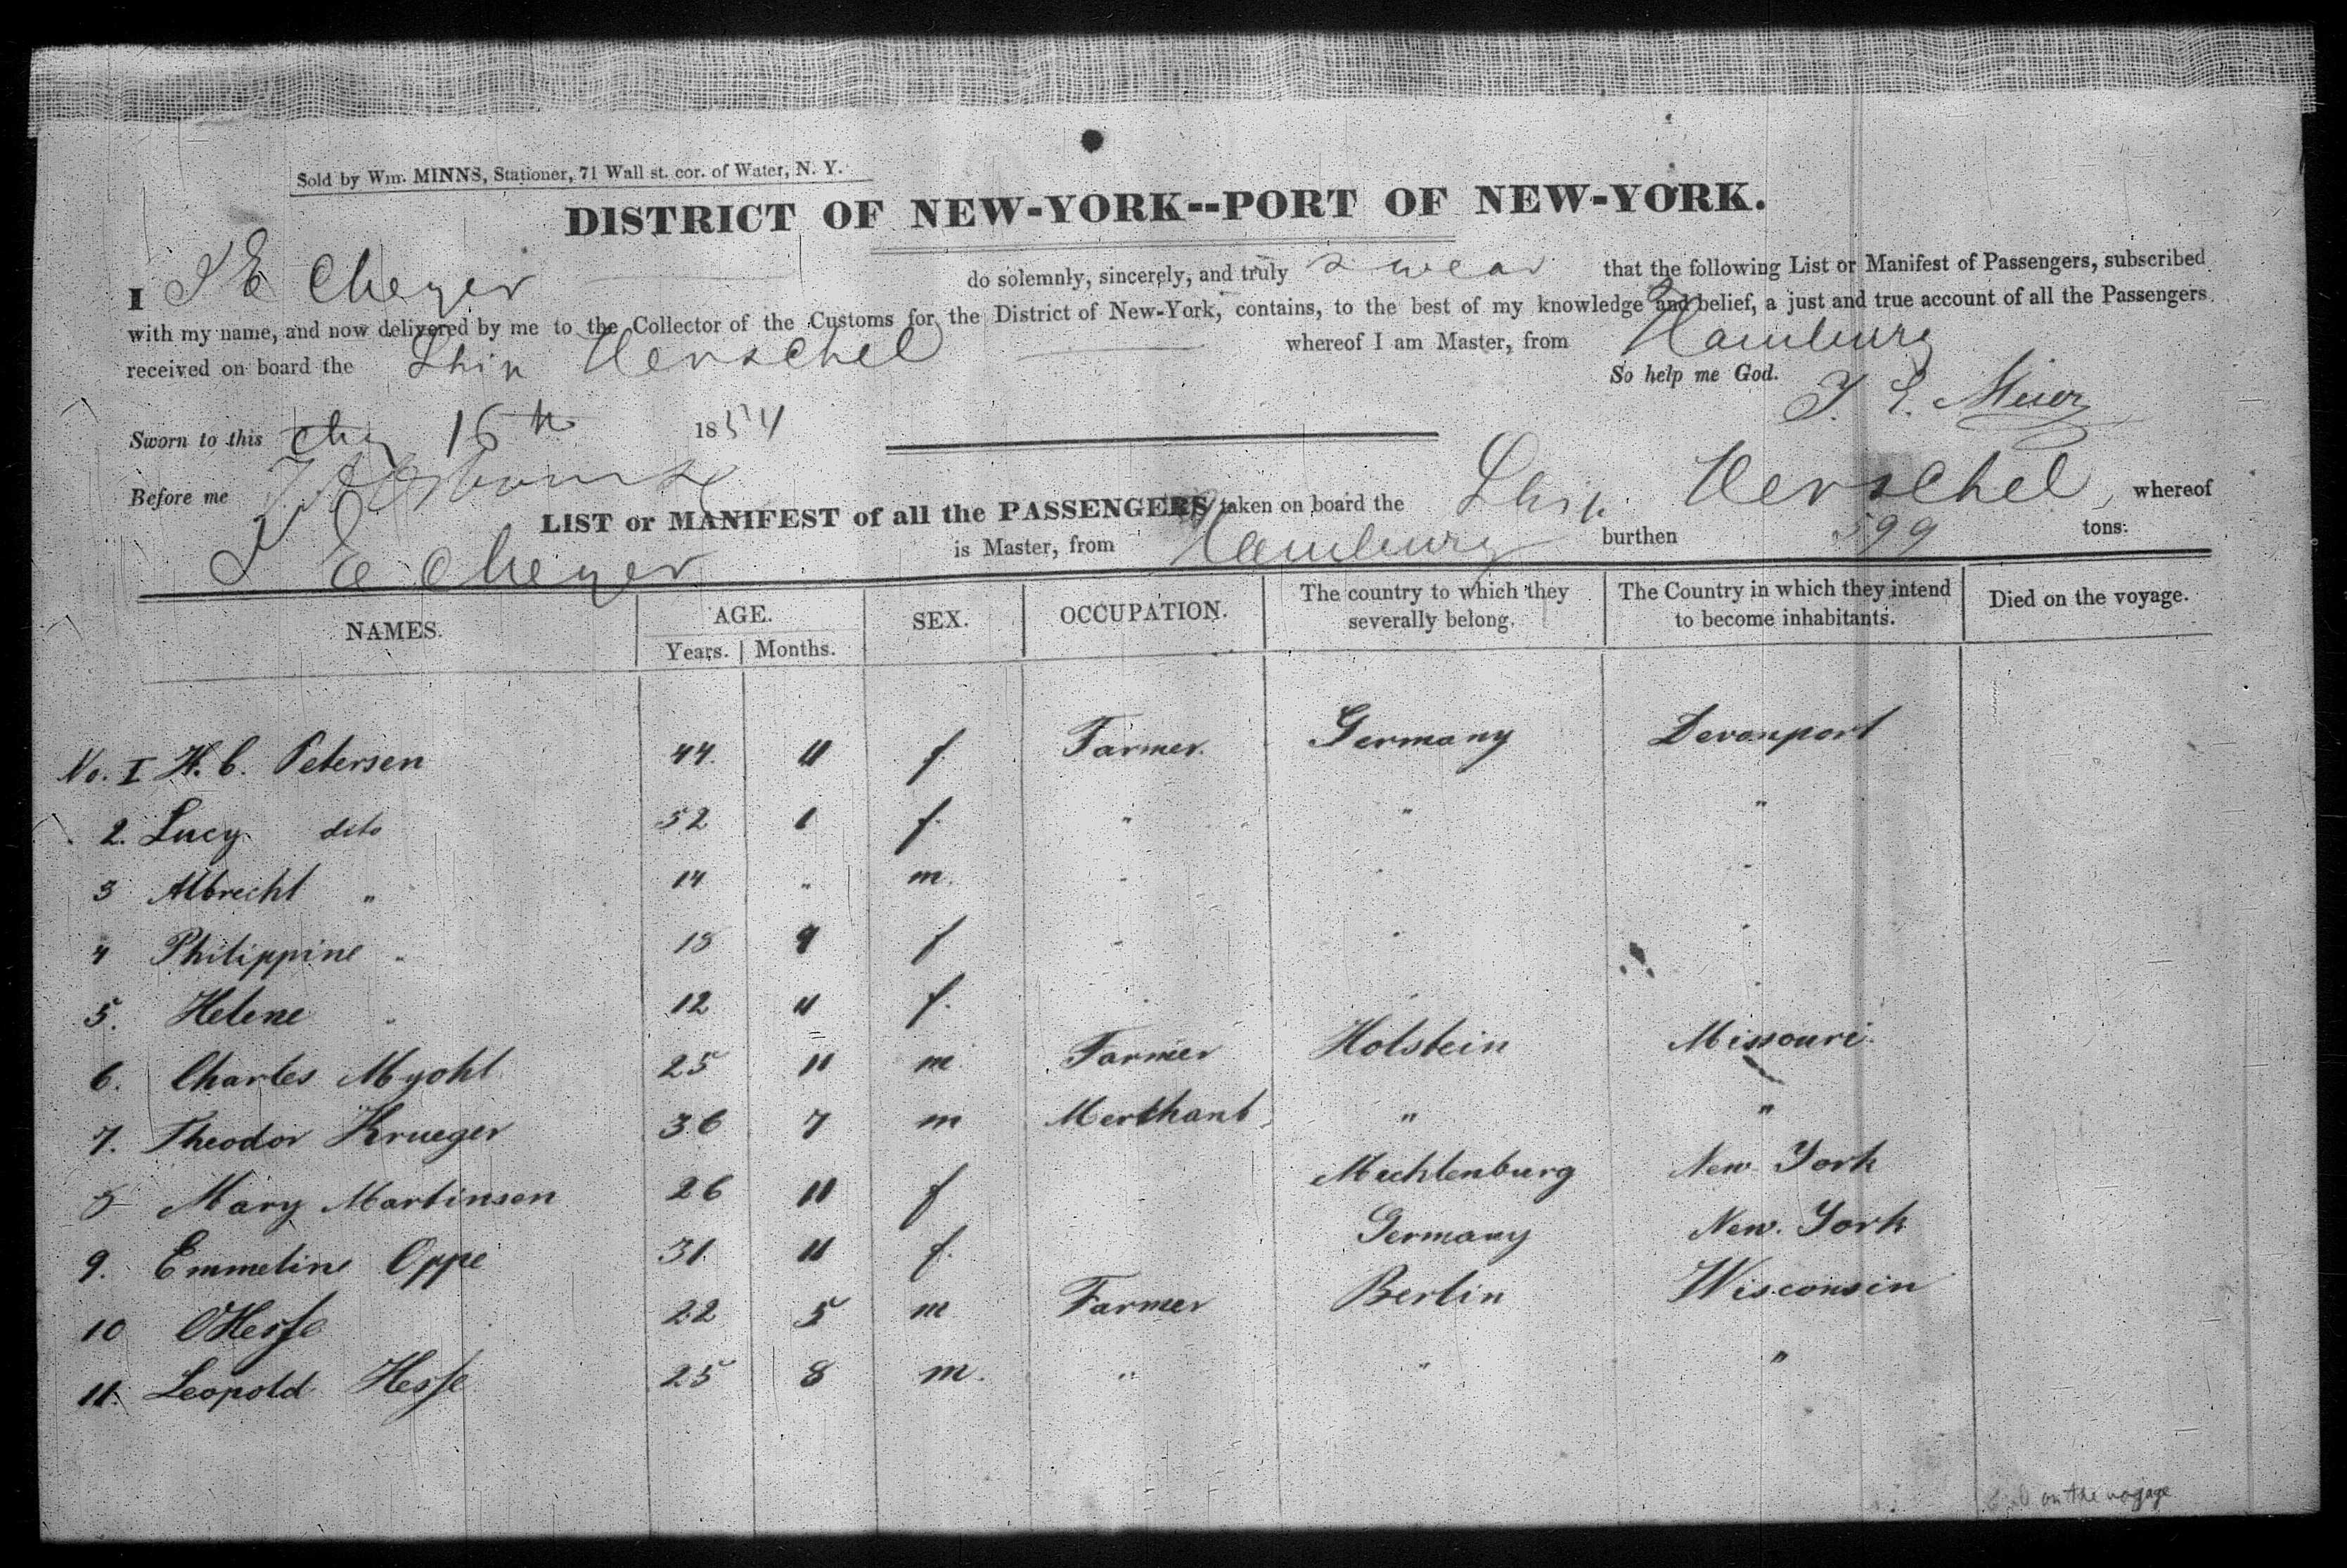 Sold by Wm. MINNS, Stationer, 71 Wall st. cor. of Water, N. Y.
DISTRICT OF NEW-YORK--PORT OF NEW-YORK.
I do solemnly, sincerely, and truly swear that the following List or Manifest of Passengers, subscribed
with my name, and now delivered by me to the Collector of the Customs for the District of New-York, contains, to the best of my knowledge and belief, a just and true account of all the Passengers
received on board the Ship Herschel whereof I am Master, from Hamburg
So help me God.
Sworn to this 15th 1854
Before me
LIST or MANIFEST of all the PASSENGERS taken on board the Ship Herschel, whereof
is Master, from Hamburg burthen 599 tons:
NAMES. AGE. SEX. OCCUPATION. The country to which they severally belong. The Country in which they intend to become inhabitants. Died on the voyage.
Years. Months.
No. I H. C. Petersen 44 11 f. Farmer. Germany Devonport
2. Lucy dito 52 1 f. " " "
3 Albrecht " 14 " m. " " "
4 Philippine " 18 9 f " " "
5. Helene " 12 11 f. " " "
6. Charles Myohl 25 11 m Farmer Holstein Missouri
7. Theodor Krueger 36 7 m Merchant " "
8 Mary Martinson 26 11 f Mecklenburg New York
9. Emmeline Oppe 31 11 f. Germany New. York
10 O Hesse 22 5 m Farmer Berlin Wisconsin
11. Leopold Hesse 25 8 m. " " "
on the voyage